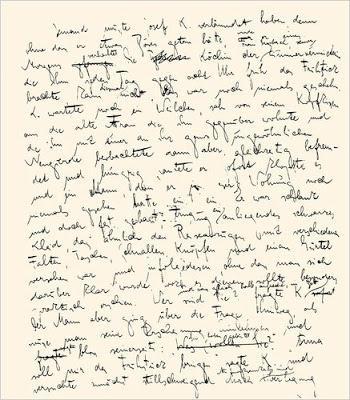 Jemand mußte Josef K. verläumdet haben, denn
ohne daß er etwas Böses getan hätte,
Morgens Köchin der Zimmervermieterin
die ihm jeden Tag gegen acht Uhr früh das Frühstück
brachte kam diesmal nicht. Das war noch niemals geschehn.
K. wartete noch ein Weilchen, sah von seinem Kopfkissen
aus die alte Frau die ihm gegenüber wohnte und
die ihn mit einer an ihr ganz ungewöhnlichen
Neugierde beobachtete, dann aber, gleichzeitig befrem-
det und hungrig, läutete er. Sofort klopfte es
und ein Mann, den er in dieser Wohnung noch
niemals gesehen hatte trat ein. Er war schlank
und doch fest gebaut, er trug ein anliegendes schwarzes
Kleid, das ähnlich den Reiseanzügen mit verschiedenen
Falten, Taschen, Schnallen, Knöpfen und einem Gürtel
versehen war und infolgedessen, ohne daß man sich
darüber klar wurde, wozu es dienen sollte, besonders
praktisch erschien. Wer sind Sie? fragte K.
Der Mann aber ging über die Frage hinweg, als
müsse man seine Erscheinung hinnehmen und
sagte bloß seinerseits: Anna
soll mir das Frühstück bringen, sagte K. und
versuchte zunächst stillschweigend durch Überlegung